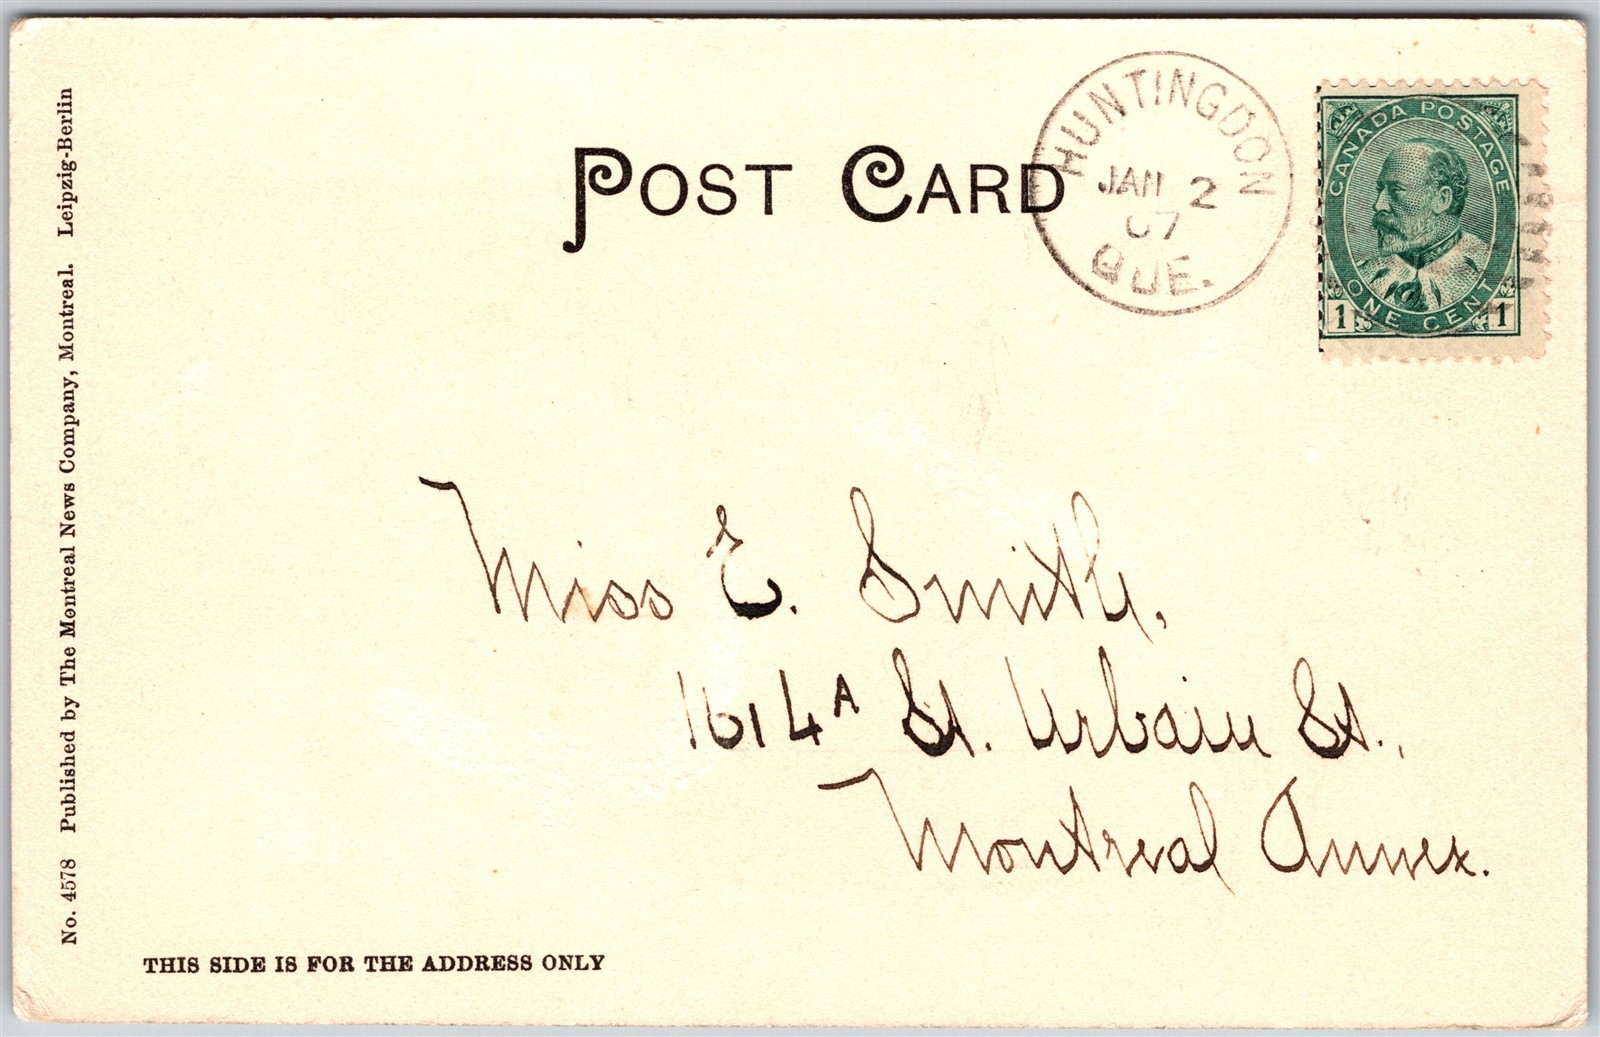 POST CARD
HUNTINGDON
JAN 2
07
QUE.
CANADA POSTAGE
ONE CENT
1 1
Miss E. Smith,
1614A St. Urbain St.,
Montreal Annex.
THIS SIDE IS FOR THE ADDRESS ONLY
No. 4578 Published by The Montreal News Company, Montreal. Leipzig-Berlin